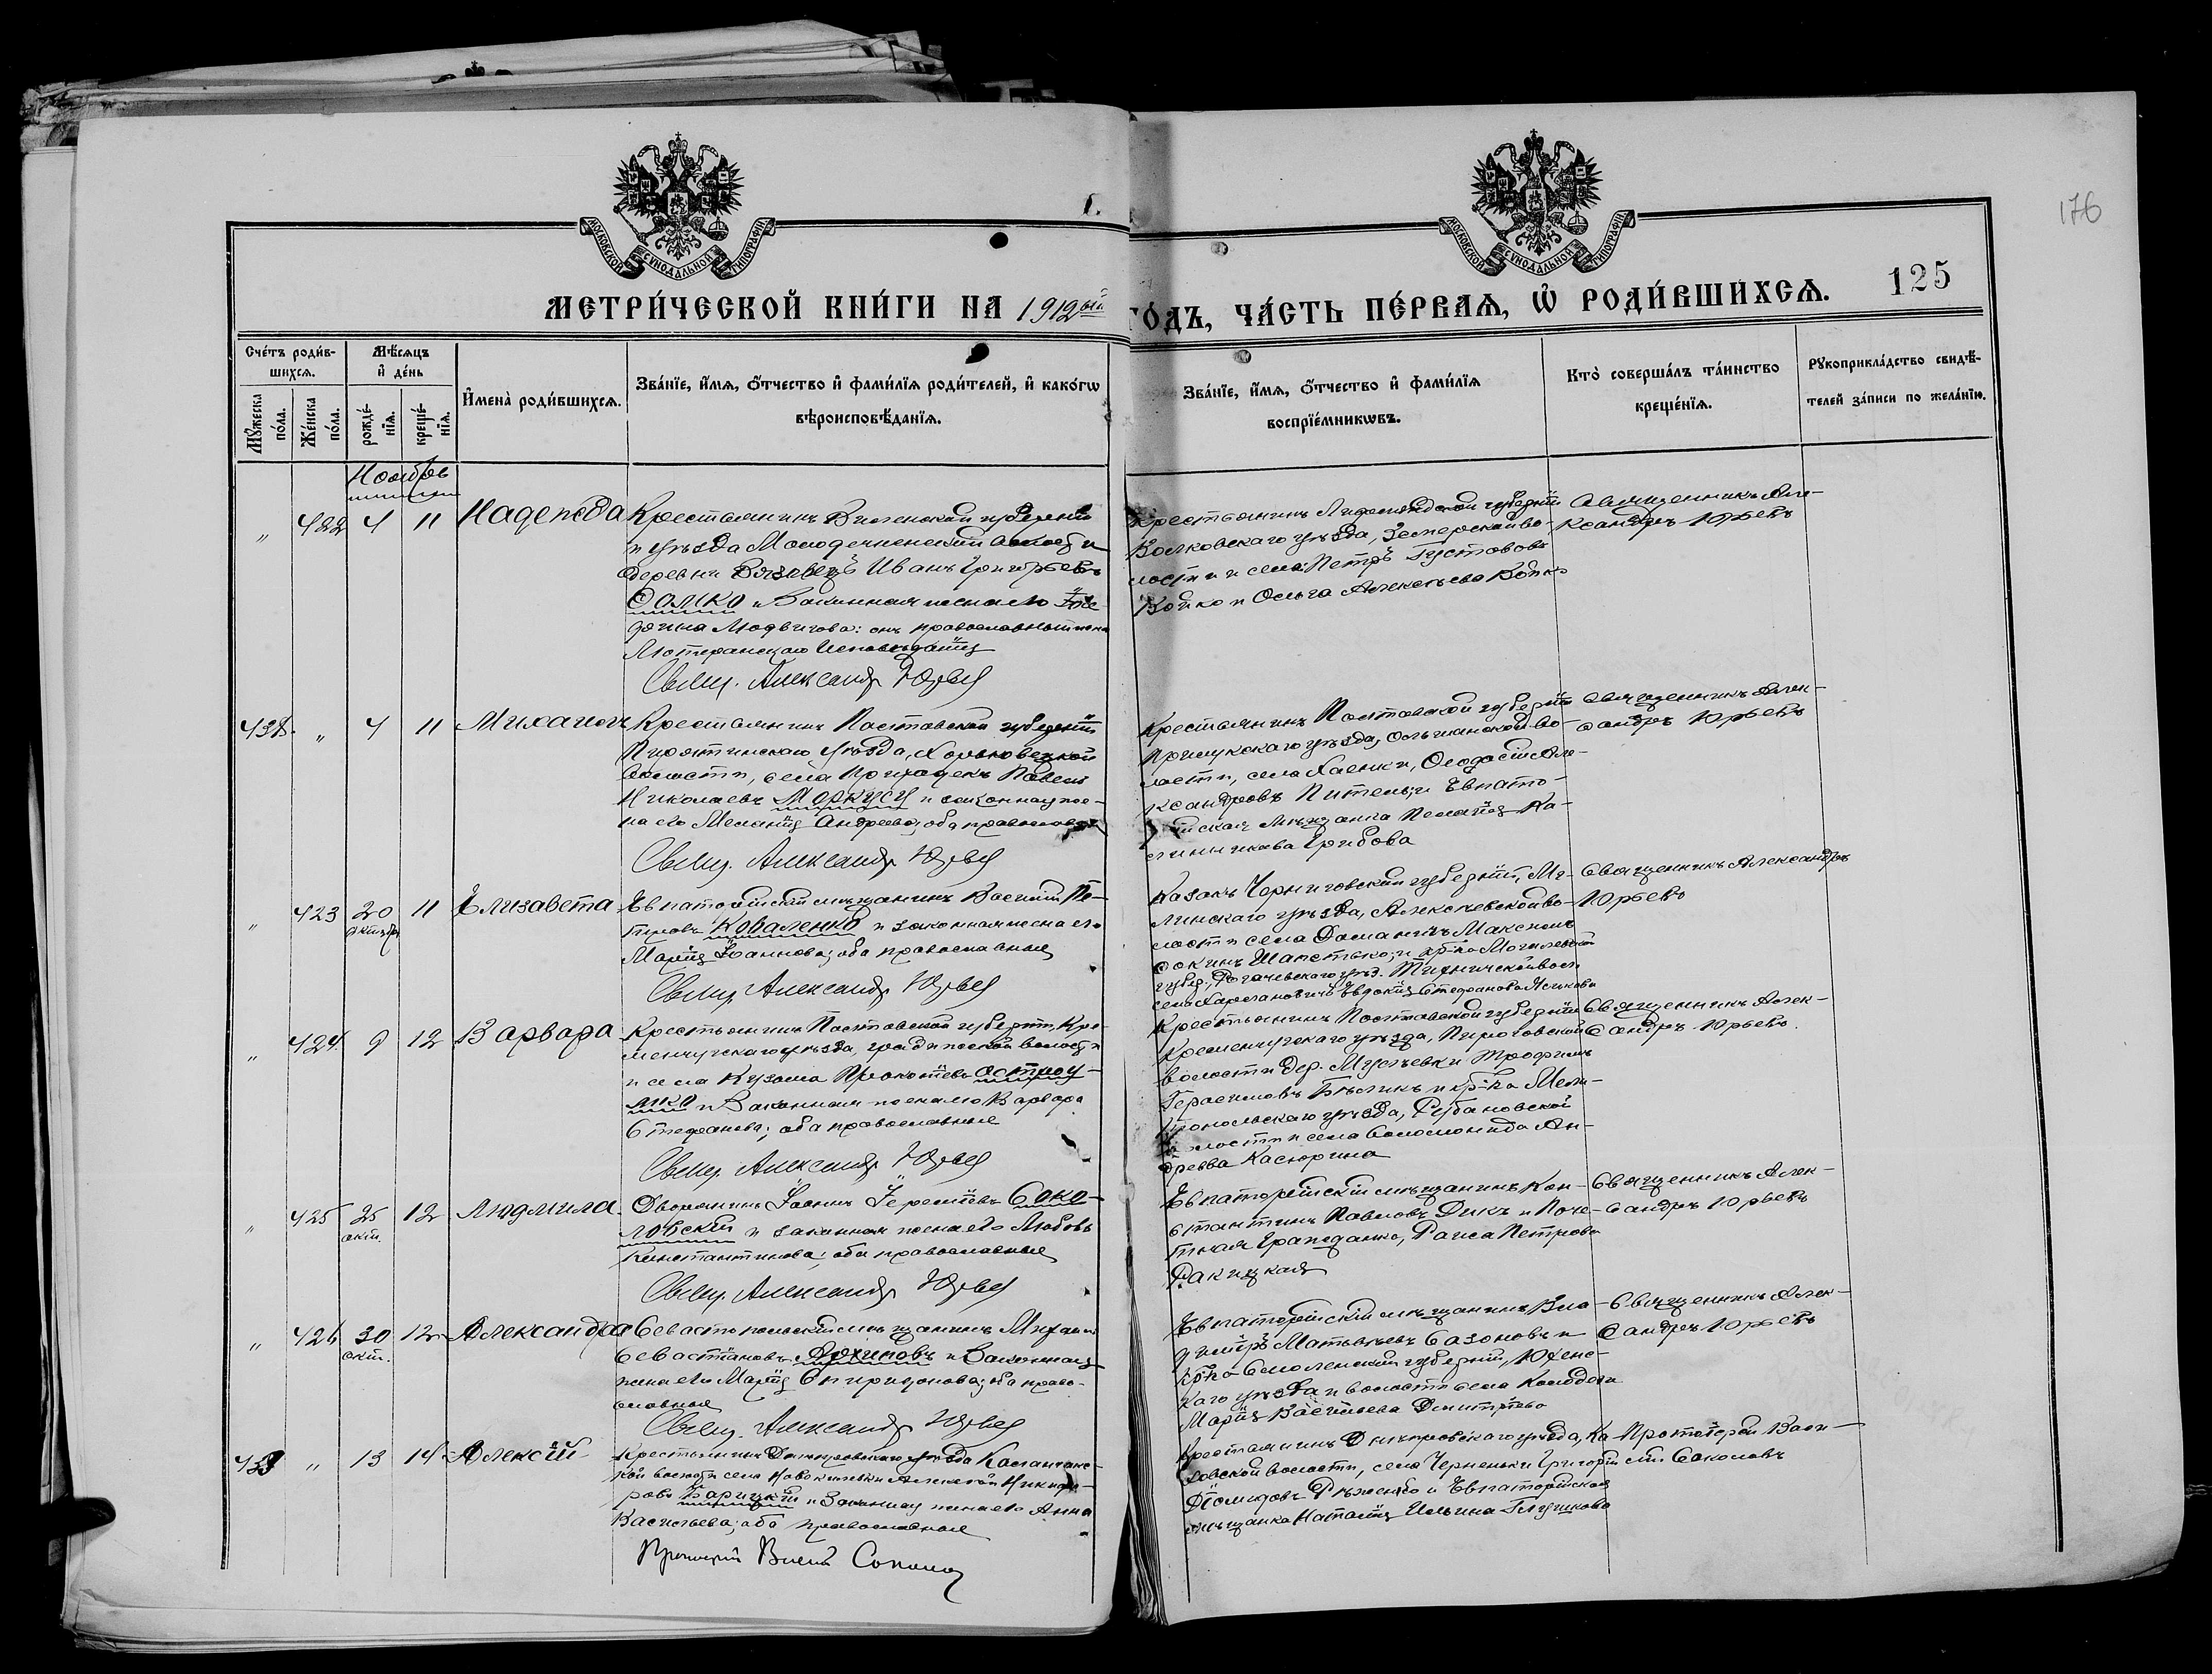 176
МОСКОВСКОЙ СѴНОДАЛЬНОЙ ТИПОГРАФІИ
МОСКОВСКОЙ СѴНОДАЛЬНОЙ ТИПОГРАФІИ
МЕТРИ́ЧЕСКОЙ КНИ́ГИ НА 1912ый ГО́ДЪ, ЧА́СТЬ ПЕ́РВАѦ, Ѡ҆ РОДИ́ВШИХСѦ. 125
Сче́тъ роди́в-
шихсѧ.
Мꙋ́жеска по́ла.
Же́нска по́ла.
Мѣ́сѧцъ
и҆ де́нь
рожде́-
нїѧ.
креще́-
нїѧ.
И҆мена̀ роди́вшихсѧ.
Зва́нїе, и҆́мѧ, ѻ҆́тчество и҆ фами́лїѧ роди́телей, и҆ како́гѡ
вѣроисповѣ́данїѧ.
Зва́нїе, и҆́мѧ, ѻ҆́тчество и҆ фами́лїѧ
воспрїе́мникѡвъ.
Кто̀ соверша́лъ та́инство
креще́нїѧ.
Рꙋкоприкла́дство свидѣ́-
телей за́писи по жела́нїю.
Ноябрь
" 422 4 11 Надежда
Крестьянинъ Виленской губерніи
и уѣзда Молодечненской волости
деревни Иванъ Григорьевъ
и законная жена его
Людвигова: онъ православный, она
Лютеранскаго Исповѣданія
Свящ. Александр Юрьев
Крестьянинъ Лифляндской губерніи
уѣзда, во-
лости и села Петръ Густавовъ
и Ольга Алексѣева
Священникъ Але-
ксандръ Юрьевъ
" 4 11 Михаилъ
Крестьянинъ Полтавской губерніи
Пирятинскаго уѣзда,
волости, села Павелъ
Николаевъ Моркусъ и законная же-
на его Меланія Андреева; оба православные
Свящ. Александр Юрьев
Крестьянинъ Полтавской губерніи
Прилукскаго уѣзда, Ольшанской во-
лости, села Ѳеодосій Але-
ксандровъ и Евпато-
рійская мѣщанка Пелагія Ка-
линникова Грибова
Священникъ Алек-
сандръ Юрьевъ
" 423 20 октября 11 Елизавета
Евпаторійскій мѣщанинъ Василій Пе-
тровъ Коваленко и законная жена его
Марія Іоаннова; оба православные
Свящ. Александр Юрьев
Казакъ Черниговской губерніи, Мг-
линскаго уѣзда, Алексѣевской во-
лости села
и кр-ка Могилевской
губер., Рогачевскаго уѣз. Тихиничской вол.
Евдокія Стефанова
Священникъ Александръ
Юрьевъ
" 424. 9 12 Варвара
Крестьянинъ Полтавской губерніи, Кре-
менчугскаго уѣзда, волости
и села Кузьма Прокопіевъ
и законная жена его Варвара
Стефанова; оба православные
Свящ. Александр Юрьев
Крестьянинъ Полтавской губерніи
Кременчугскаго уѣзда,
волости дер. Трофимъ
Герасимовъ Бѣликъ и кр-ка Мели-
топольскаго уѣзда, Рубановской
волости и села Соломонида Ан-
дреева Касюрина
Священникъ Алек-
сандръ Юрьевъ.
" 425 25 окт. 12 Людмила.
Дворянинъ Іоаннъ Іереміевъ Соко-
ловскій и законная жена его Любовь
Константинова; оба православные
Свящ. Александр Юрьев
Евпаторійскій мѣщанинъ Кон-
стантинъ Павловъ Дикъ и Поче-
тная Гражданка, Раиса Петрова
Ракицкая
Священникъ Алек-
сандръ Юрьевъ
" 426 30 окт. 12 Александра
Севастопольскій мѣщанинъ Михаилъ
Севастіановъ Архиповъ и законная
жена его Марія Спиридонова; оба право-
славные
Свящ. Александр Юрьев
Евпаторійскій мѣщанинъ Вла-
диміръ Матвѣевъ Сазоновъ и
кр-ка Смоленской губерніи, Юхнов-
скаго уѣзда и волости села Колодези
Марія Васильева Дмитріева
Священникъ Алек-
сандръ Юрьевъ
" 13 14 Алексій
Крестьянинъ Днѣпровскаго уѣзда Каланчакс-
кой волости села Алексѣй Никифо-
ровъ Барицкій и законная жена его Анна
Васильева; оба православные
Протоіерей Василій Соколов
Крестьянинъ Днѣпровскаго уѣзда, Ка-
ховской волости, села Черненьки Григорій
Діомидовъ и Евпаторійская
мѣщанка Наталія Ильина Глушкова
Протоіерей Васи-
лій Соколовъ